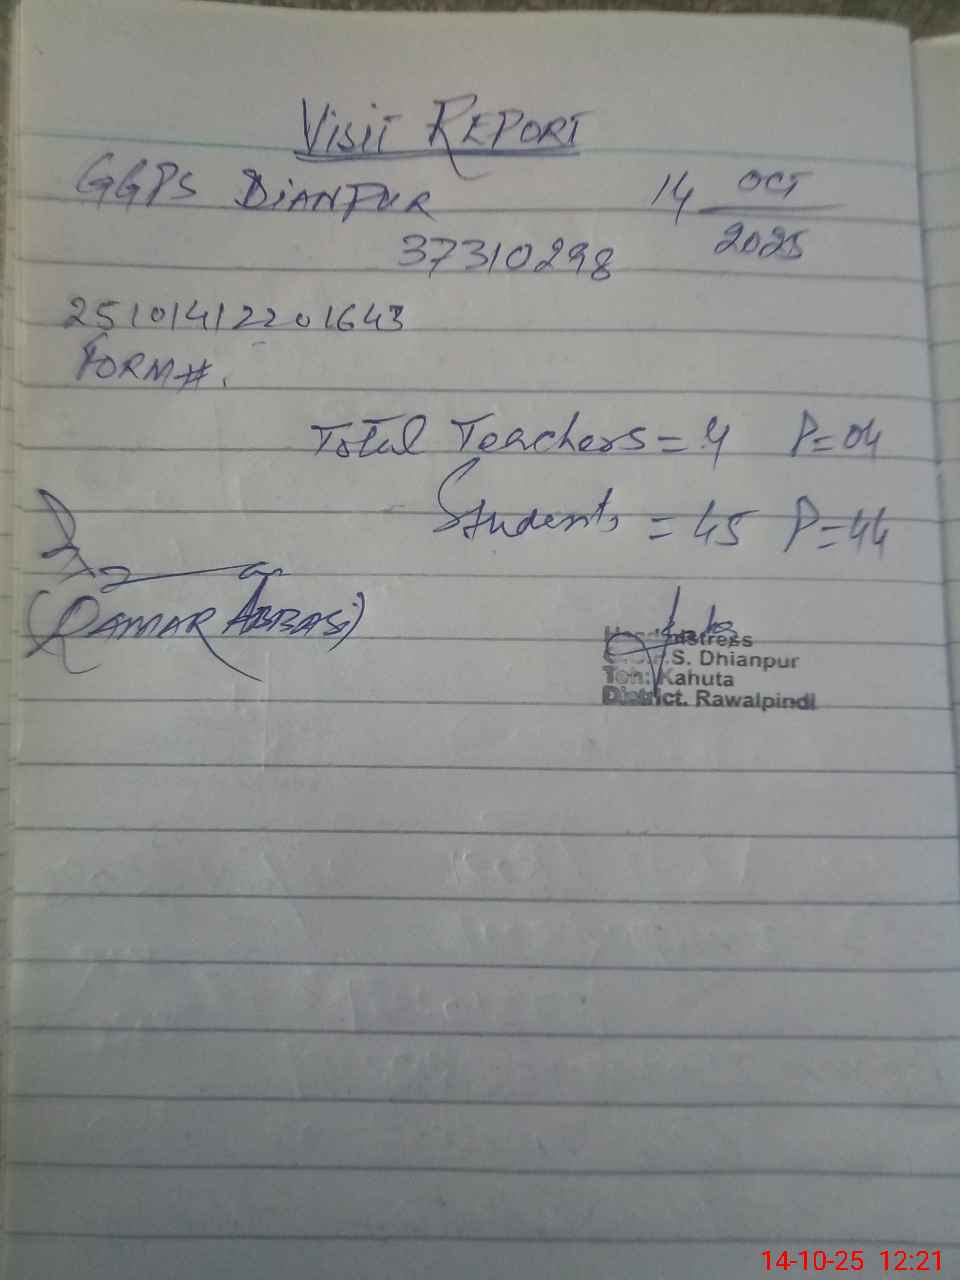 VISIT REPORT
GGPS DIANPUR 14 OCT
2025
37310298
251014122201643
FORM#.
Total Teachers = 4 P=04
Students = 45 P=44
(QAMAR ABBASI)
Headmistress
S. Dhianpur
Teh: Kahuta
District. Rawalpindi
14-10-25 12:21